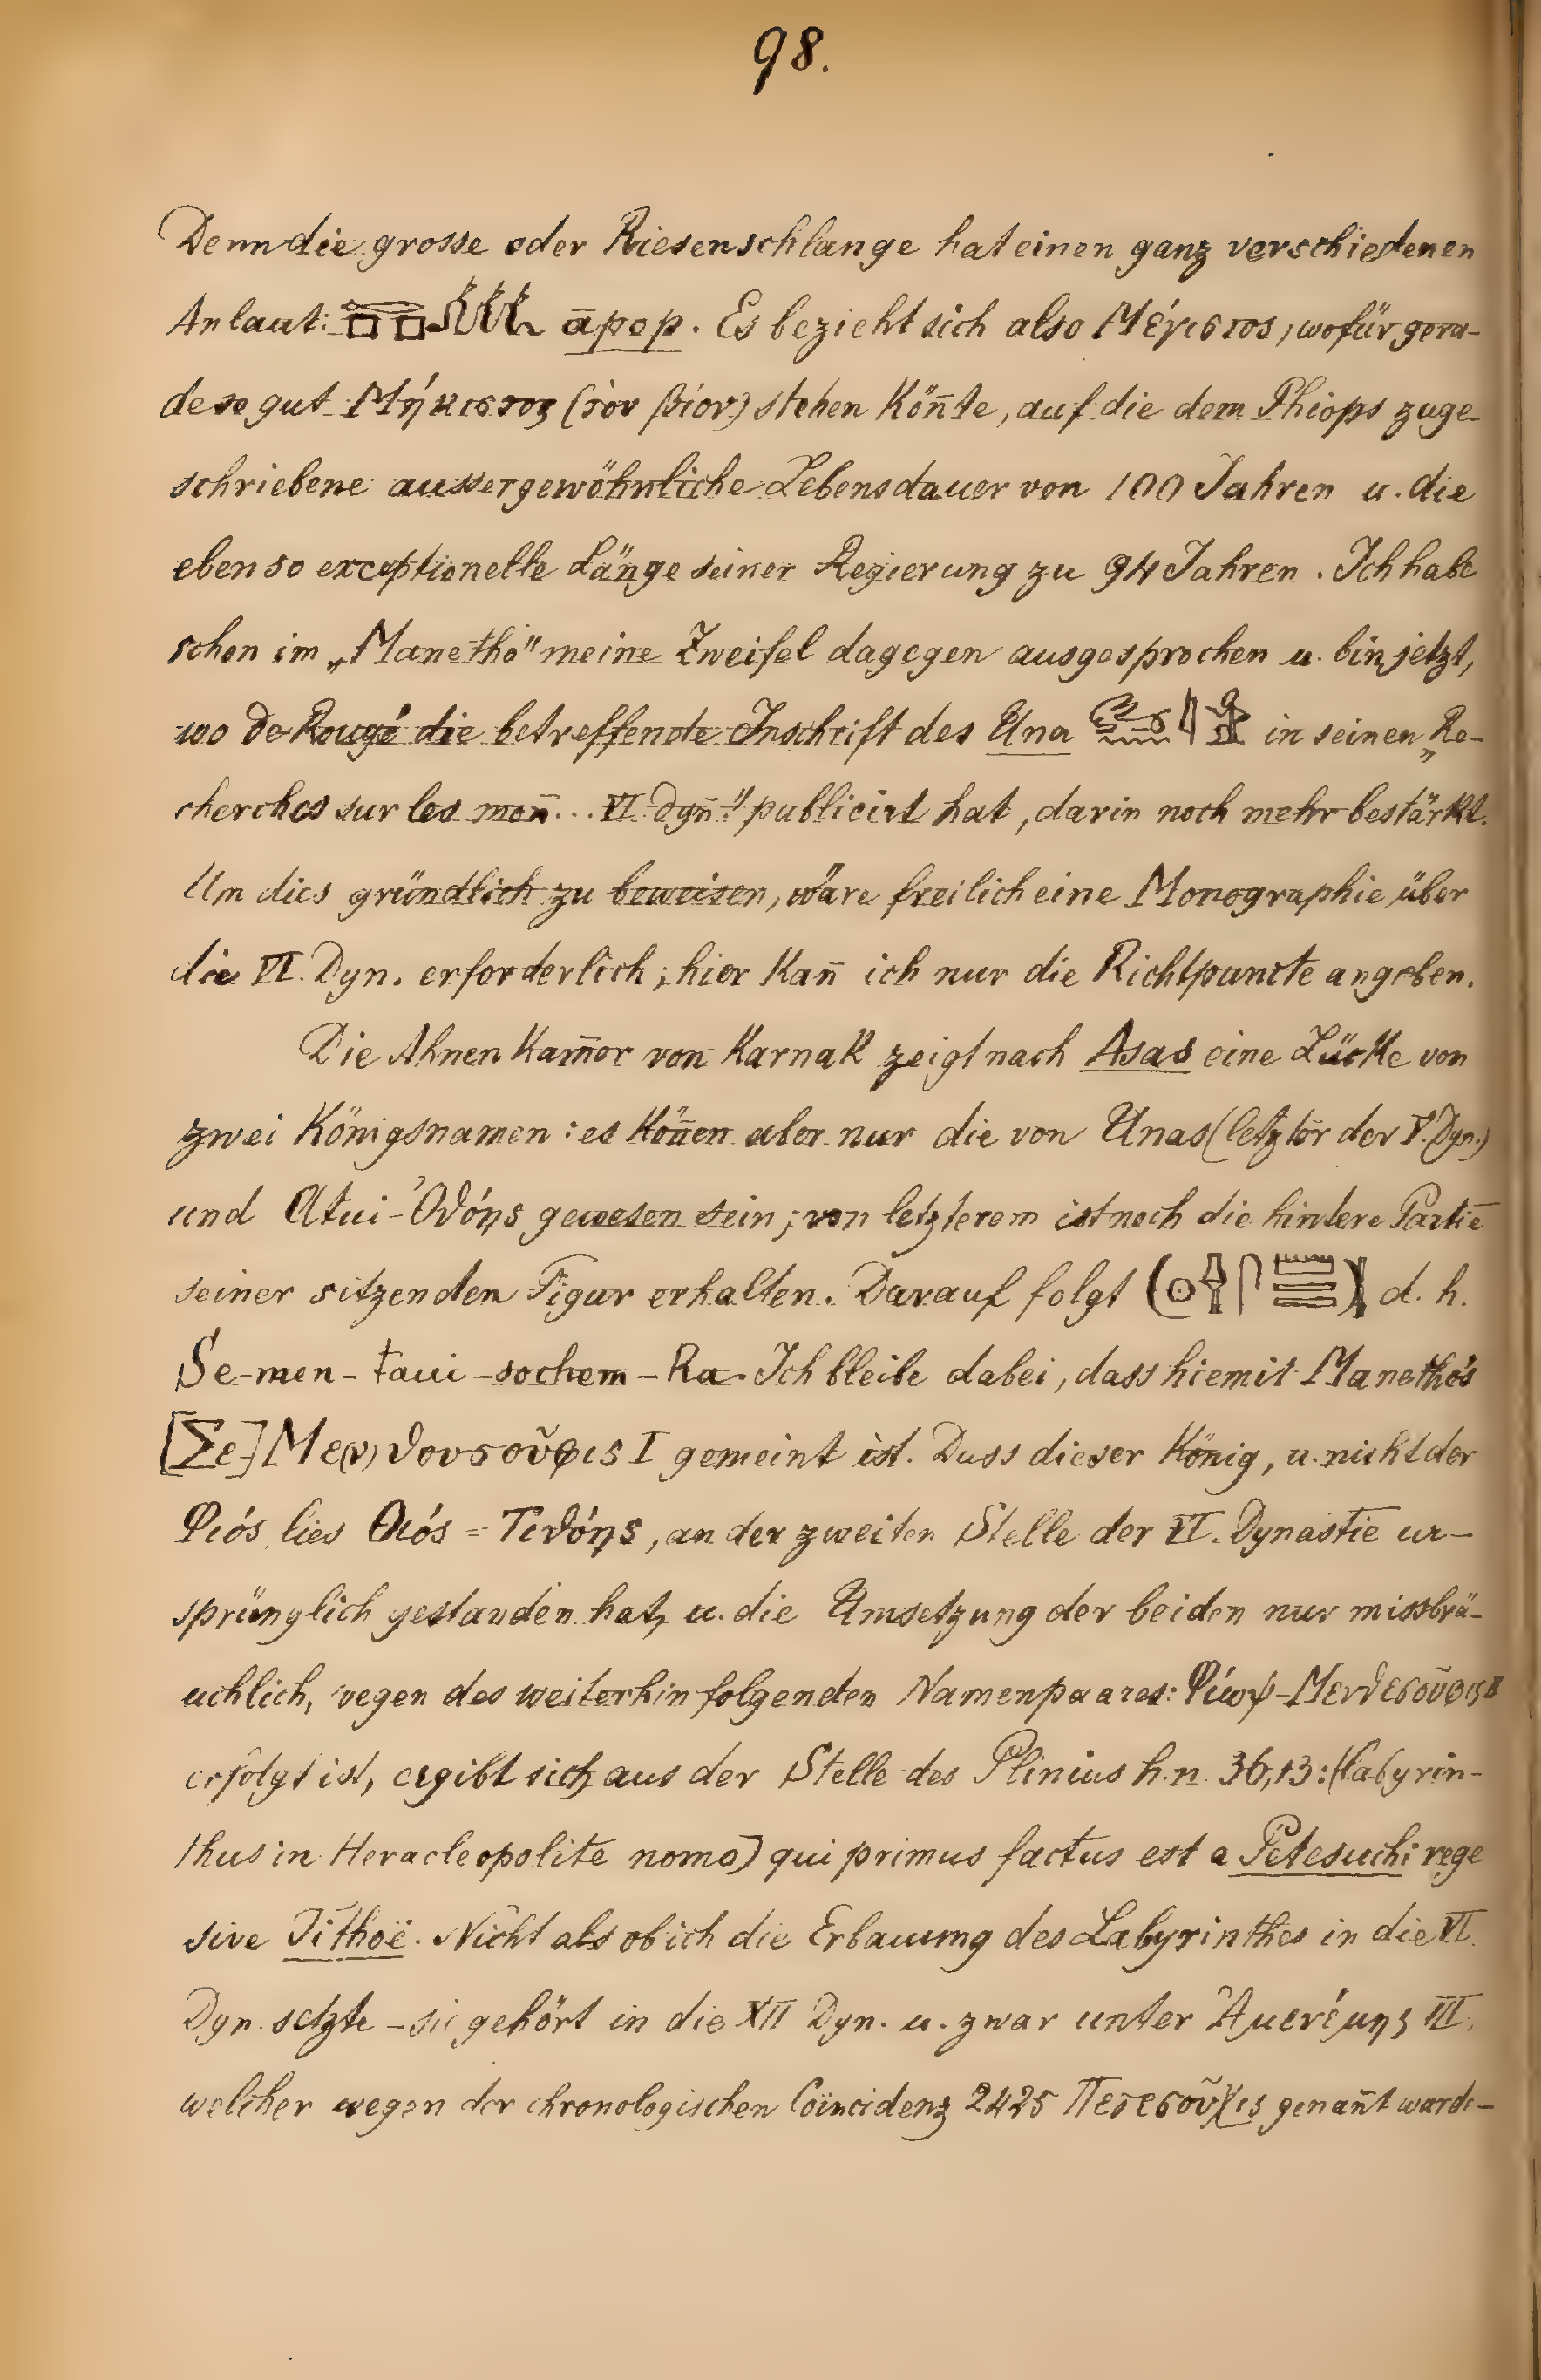 98.
Denn die grosse oder Riesenschlange hat einen ganz verschiedenen
Anlaut: āpop. Es bezieht sich also Μέγιστος, wofür gera-
de so gut Μήκιστος (τὸν βίον) stehen kön̄te, auf die dem Phiops zuge-
schriebene aussergewöhnliche Lebensdauer von 100 Jahren u. die
ebenso exceptionelle Länge seiner Regierung zu 94 Jahren. Ich habe
schon im „Manetho" meine Zweifel dagegen ausgesprochen u. bin jetzt,
wo de Rougé die betreffende Inschrift des Una in seinen „Re-
cherches sur les mon̄... VI Dyn̄." publicirt hat, darin noch mehr bestärkt.
Um dies gründlich zu beweisen, wäre freilich eine Monographie über
die VI. Dyn. erforderlich; hier kan̄ ich nur die Richtpuncte angeben.
Die Ahnenkam̄er von Karnak zeigt nach Asas eine Lücke von
zwei Königsnamen: es kön̄en aber nur die von Unas (letzter der V. Dyn.)
und Atui-Ὀθόης gewesen sein; von letzterem ist noch die hintere Partie
seiner sitzenden Figur erhalten. Darauf folgt d. h.
Se-men-taui-sochem-Ra. Ich bleibe dabei, dass hiemit Manetho's
[Σε]Με(ν)θουσοῦφις I gemeint ist. Dass dieser König, u. nicht der
Φιός lies Θιός = Τιθόης, an der zweiten Stelle der VI. Dynastie ur-
sprünglich gestanden hat, u. die Umsetzung der beiden nur missbrä-
uchlich, wegen des weiterhin folgenden Namenpaares: Φίωψ-Μενθεσοῦφις II
erfolgt ist, ergibt sich aus der Stelle des Plinius h. n. 36,13: (Labyrin-
thus in Heracleopolite nomo) qui primus factus est a Petesuchi rege
sive Tithoë. Nicht als ob ich die Erbauung des Labyrinthes in die VI.
Dyn. setzte - sie gehört in die XII Dyn. u. zwar unter Ἀμενέμης III.
welcher wegen der chronologischen Coïncidenz 2425 Πετεσοῦχις genan̄t warde-